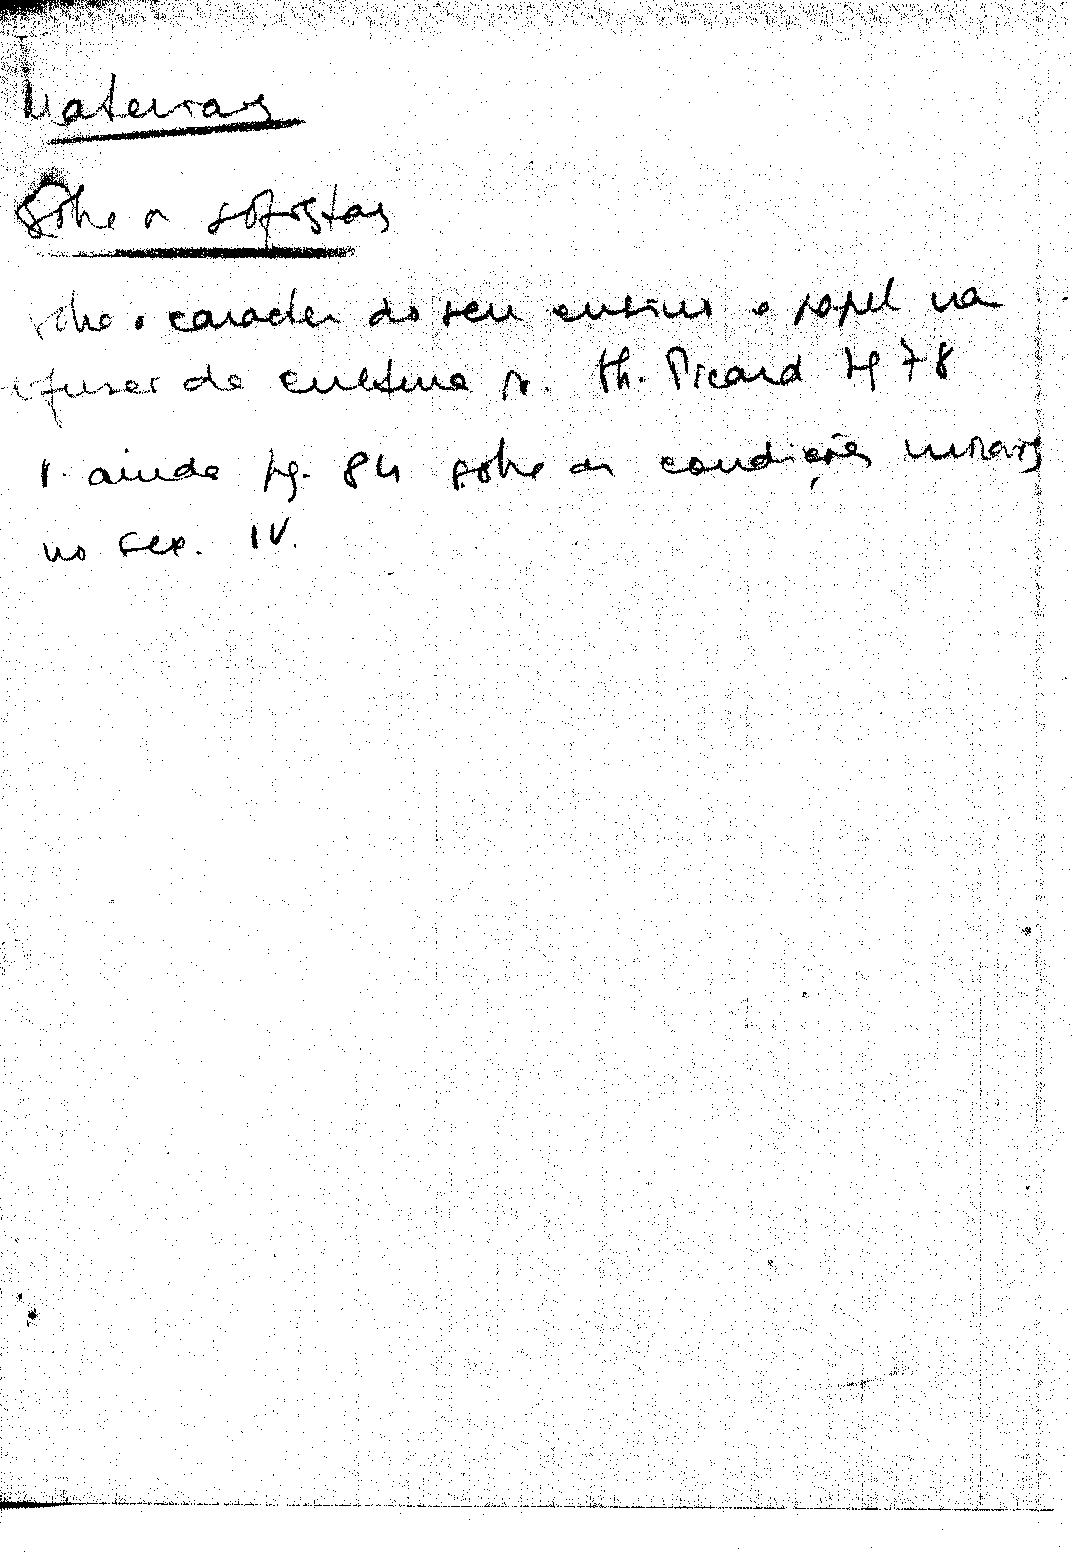 Materiais
Sobre os sofistas
Sobre o caracter do seu ensino e papel na
difusão da cultura v. Ch. Picard pg 78
V. ainda pg. 84 sobre as condições morais
no sec. IV.